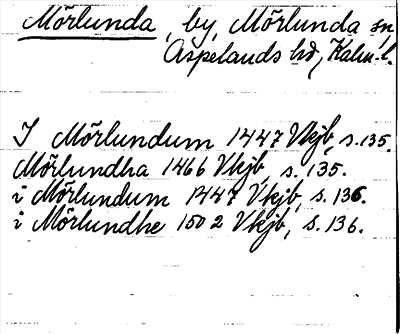 Mörlunda, by, Mörlunda sn,
Aspelands hd, Kalm. l.
I Mörlundum 1447 Vkjb, s. 135.
Mörlundha 1466 Vkjb, s. 135.
i Mörlundum 1447 Vkjb, s. 136.
i Mörlundhe 1502 Vkjb, s. 136.